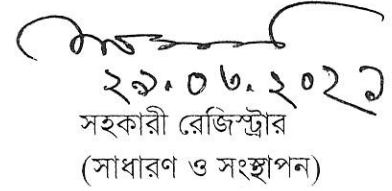 ২৯.০৬.২০২১
সহকারী রেজিস্ট্রার
(সাধারণ ও সংস্থাপন)